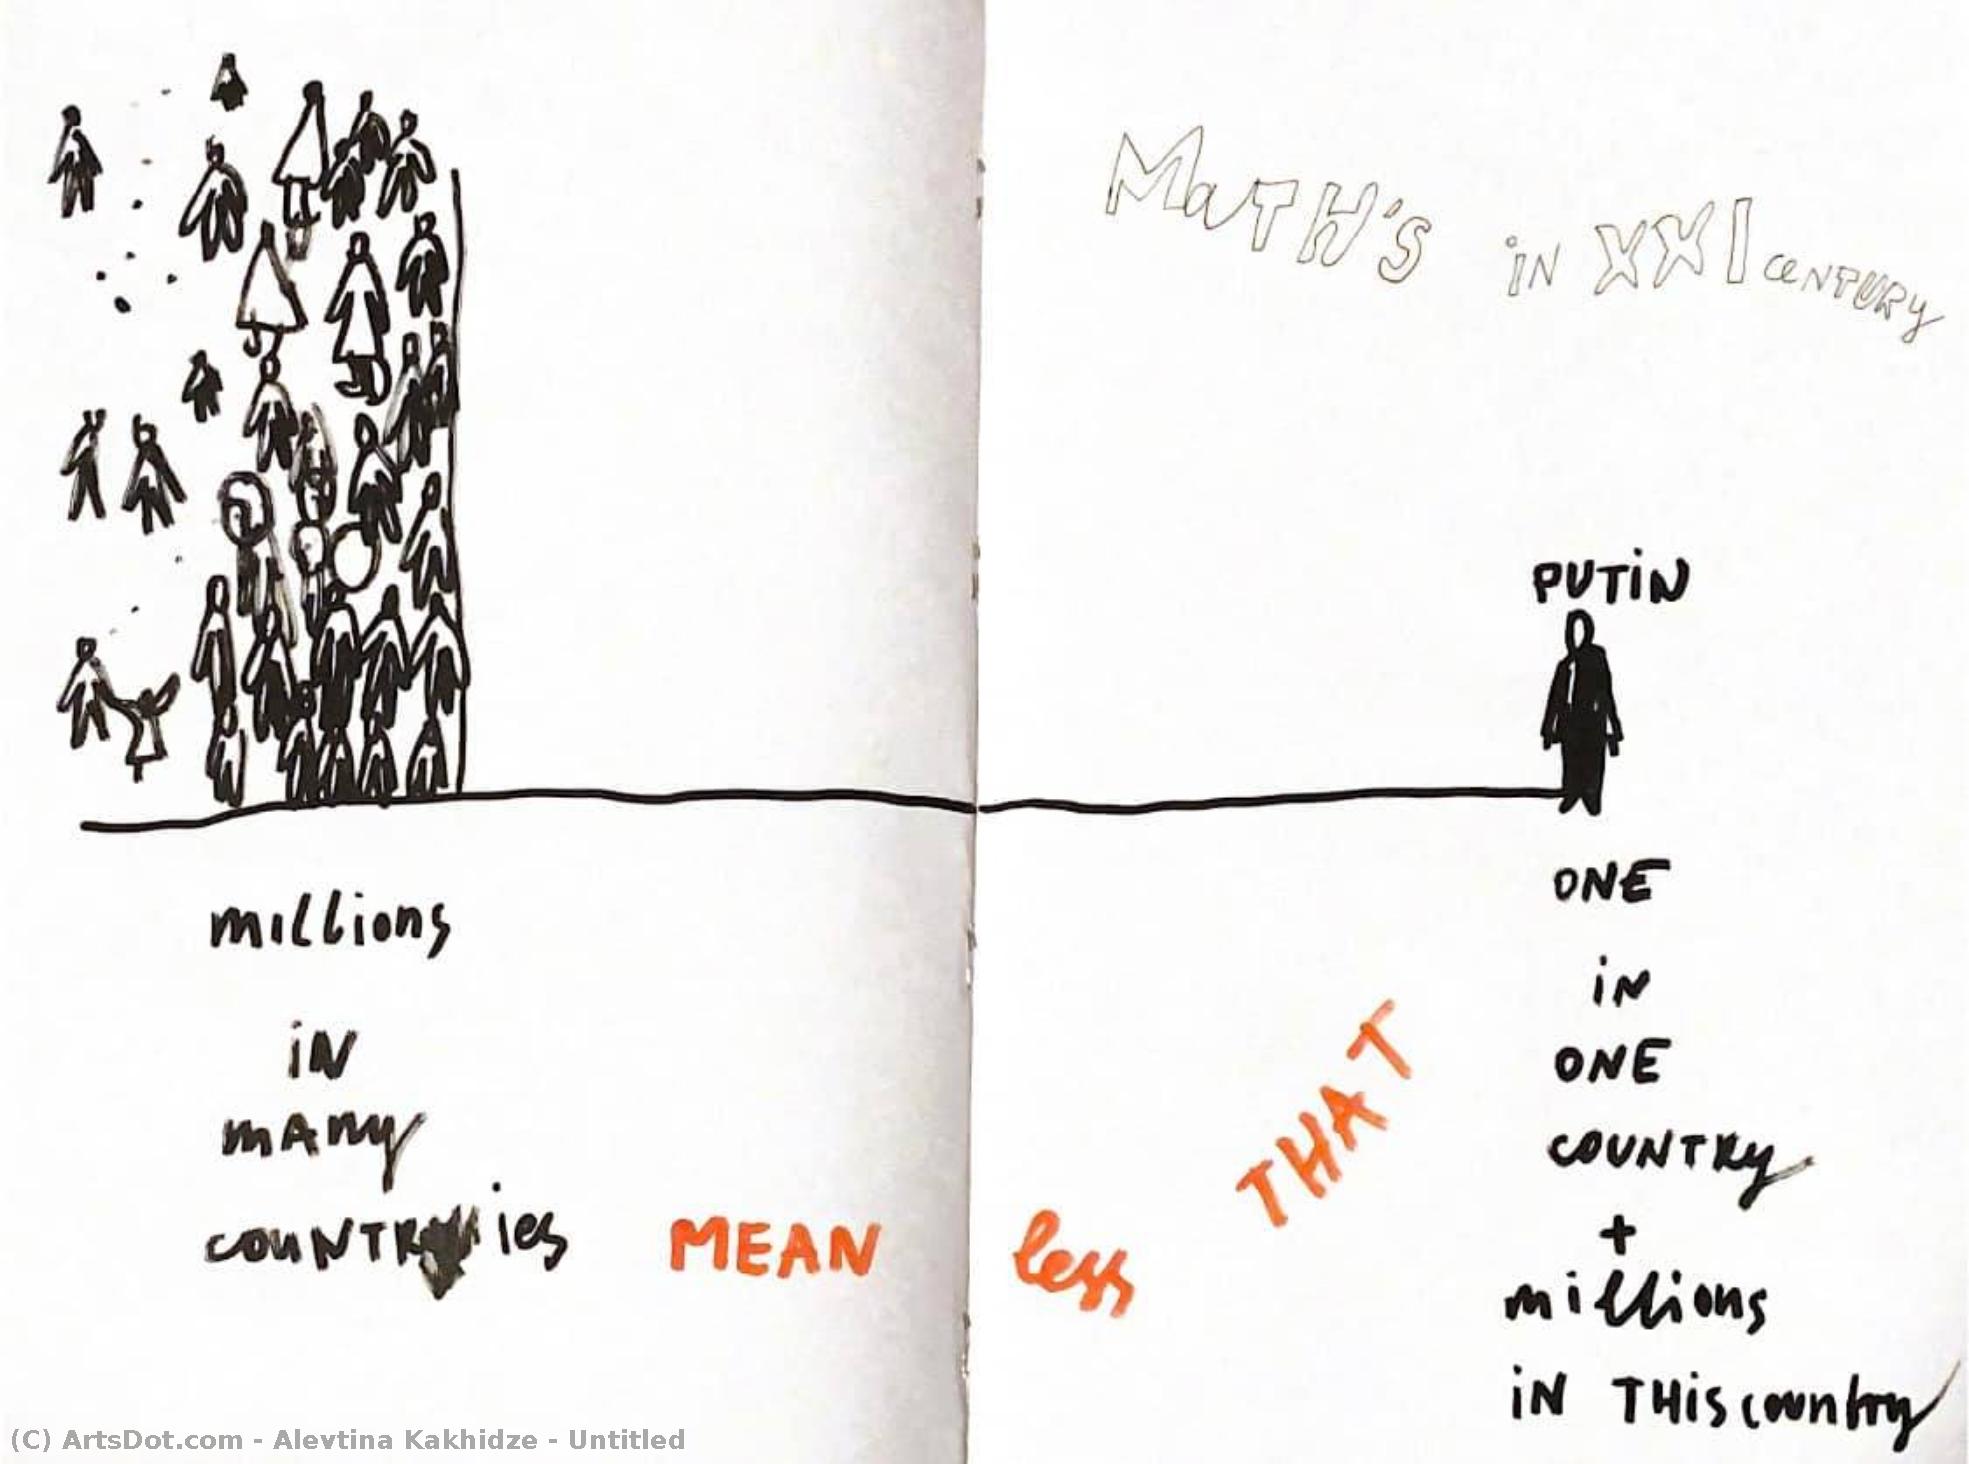 MaTH's iN XXI CENTURY
PUTiN
millions
iN
mANy
COUNTRies
MEAN less THAT
ONE
iN
ONE
COUNTRy
+
millions
iN THis country
(C) ArtsDot.com - Alevtina Kakhidze - Untitled